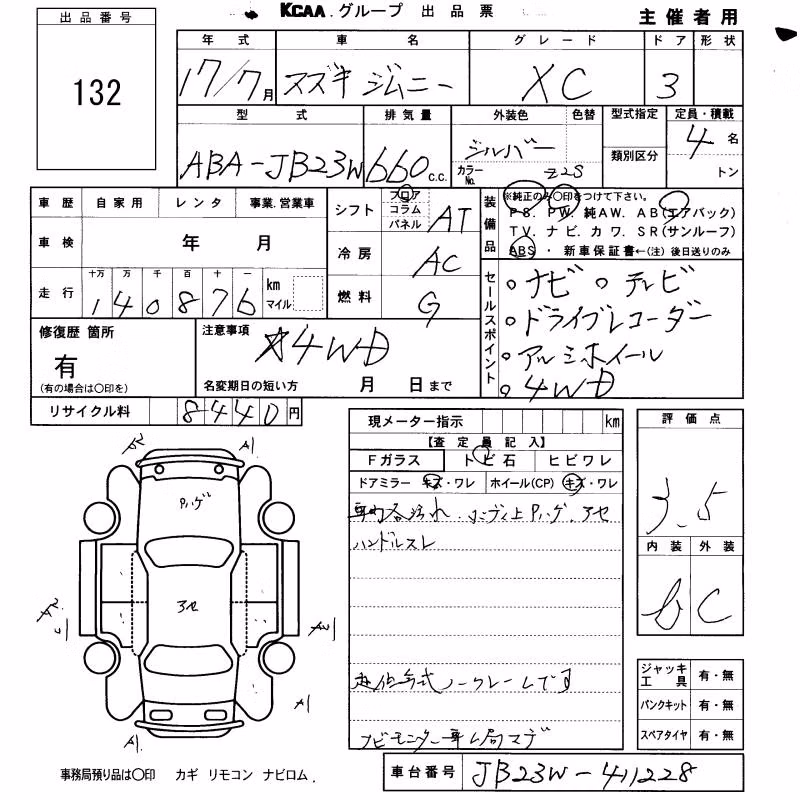 KCAA. グループ 出品票
主催者用
出品番号
132
年式 車名 グレード ドア 形状
17/7月 スズキ ジムニー XC 3
型式 排気量 外装色 色替 型式指定 定員・積載
ABA-JB23W 660c.c. シルバー カラーNo. Z2S 類別区分 4名
トン
車歴 自家用 レンタ 事業.営業車
車検 年 月
走行 十万 万 千 百 十 一 km マイル
140876
シフト フロア コラム パネル AT
冷房 AC
燃料 G
装備品
※純正のみ○印をつけて下さい。
PS. PW. 純AW. AB(エアバック)
TV. ナビ. カワ. SR(サンルーフ)
ABS・新車保証書←(注)後日送りのみ
セールスポイント
ナビ テレビ
ドライブレコーダー
アルミホイール
4WD
修復歴 箇所
有
(有の場合は○印を)
注意事項
☆4WD
名変期日の短い方 月 日まで
リサイクル料 8440円
現メーター指示 km
【査定員記入】
Fガラス トビ石 ヒビワレ
ドアミラー キズ・ワレ ホイール(CP) キズ・ワレ
ハンドルスレ
ノークレームです
評価点
3.5
内装 外装
b C
A2 A1
Pハゲ
アセ
A2
A2
A1
A1
ジャッキ工具 有・無
パンクキット 有・無
スペアタイヤ 有・無
事務局預り品は○印 カギ リモコン ナビロム.
車台番号 JB23W-411228